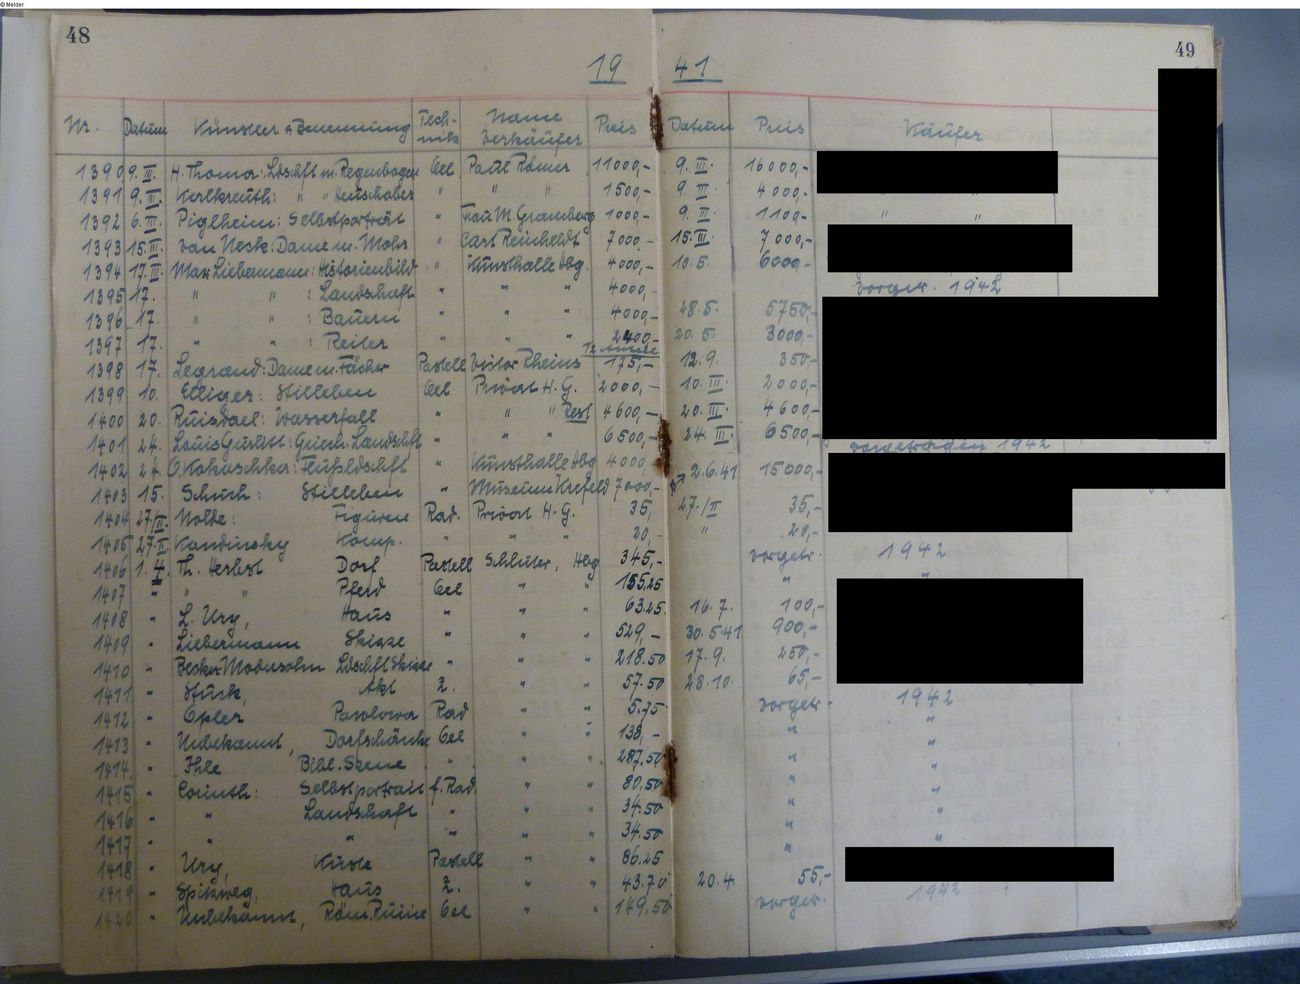 © Melder
48 49
19 41
Nr. Datum Künstler u. Benennung Technik Name Verkäufer Preis Datum Preis Käufer
1390 9. III. H. Thoma: Ldschft m. Regenbogen Oel Paul Römer 11000,- 9. III. 16000,-
1391 9. III. Kalkreuth: " " Heuschober " " " 1500,- 9. III 4000,- " "
1392 6. III. Piglheim: Selbstporträt " Frau M. Gramberg 1000,- 9. III 1100,- " "
1393 15. III. van Neck: Dame m. Mohr " Carl Reinheldt 7000,- 15. III. 7000,-
1394 17. III. Max Liebermann: Historienbild " Kunsthalle Hbg. 4000,- 10.5. 6000,-
1395 17. " " : Landschaft " " " 4000,- vorgetr. 1942
1396 17. " " : Bauern " " " 4000,- 28.5. 5750,-
1397 17. " " : Reiter " " " 2400,- 20.5. 3000,-
1398 17. Legrand: Dame m. Fächer Pastell Victor Rheins 175,- 12.9. 350,-
1399 10. Elliger: Stilleben Oel Privat H. G. 2000,- 10. III. 2000,-
1400 20. Ruisdael: Wasserfall " " " Rest 4600,- 20. III. 4600,-
1401 24. Louis Gurlitt: Griech. Landschft " " " 6500,- 24. III. 6500,-
vorgetragen 1942
1402 24. O. Kokoschka: Flußldschft " Kunsthalle Hbg 4000,- 2.6.41 15000,-
1403 15. Schuch: Stilleben " Museum Krefeld 7000,-
1404 27./II. Nolde: Figuren Rad. Privat H. G. 35, 27./II 35,-
1405 27. II. Kandinsky Komp. " " " 20,- " 20,-
1406 1. 4. Th. Herbst Dorf Pastell Schlüter, Hbg 345,- vorgetr. 1942
1407 " " " Pferd Oel " " 155.25 " "
1408 " L. Ury, Haus " " " 63.25 16.7. 100,-
1409 " Liebermann Skizze " " " 529,- 30.5.41 900,-
1410 " Becker Modersohn Ldschft Skizze " " " 218.50 17.9. 250,-
1411 " Stuck, Akt Z. " " 57.50 28.10. 65,-
1412 " Opler Pawlowa Rad " " 5.75 vorgetr. 1942
1413 " Unbekannt, Dorfschänke Oel " " 138,- " "
1414 " Ihle Bibl. Szene " " " 287.50 " "
1415 " Corinth: Selbstportrait f. Rad. " " 80.50 " "
1416 " " Landschaft " " " 34.50 " "
1417 " " " " " " 34.50 " "
1418 " Ury, Küste Pastell " " 86.25 " "
1419 " Spitzweg, Haus Z. " " 43.70 20.4. 55,-
1420 " Unbekannt, Röm. Ruine Oel " " 149.50 vorgetr. 1942